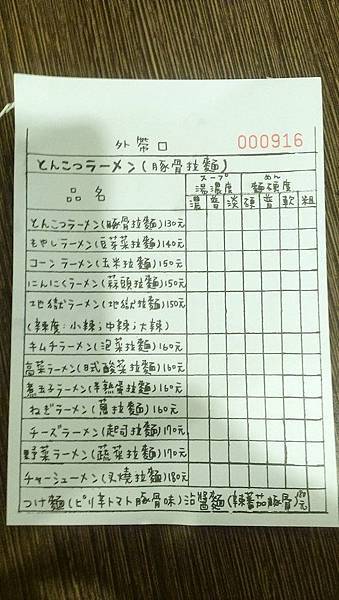 外帶口 000916
とんこつラーメン(豚骨拉麵)
品名 スープ 湯濃度 めん 麵硬度
濃 普 淡 硬 普 軟 粗
とんこつラーメン(豚骨拉麵)130元
もやしラーメン(豆芽菜拉麵)140元
コーンラーメン(玉米拉麵)150元
にんにくラーメン(蒜頭拉麵)150元
地獄ラーメン(地獄拉麵)150元
(辣度:小辣;中辣;大辣)
キムチラーメン(泡菜拉麵)160元
高菜ラーメン(日式酸菜拉麵)160元
煮玉子ラーメン(半熟蛋拉麵)160元
ねぎラーメン(蔥拉麵)160元
チーズラーメン(起司拉麵)170元
野菜ラーメン(蔬菜拉麵)170元
チャーシューメン(叉燒拉麵)180元
つけ麵(ピリ辛トマト豚骨味)沾醬麵(辣蕃茄豚骨)180元